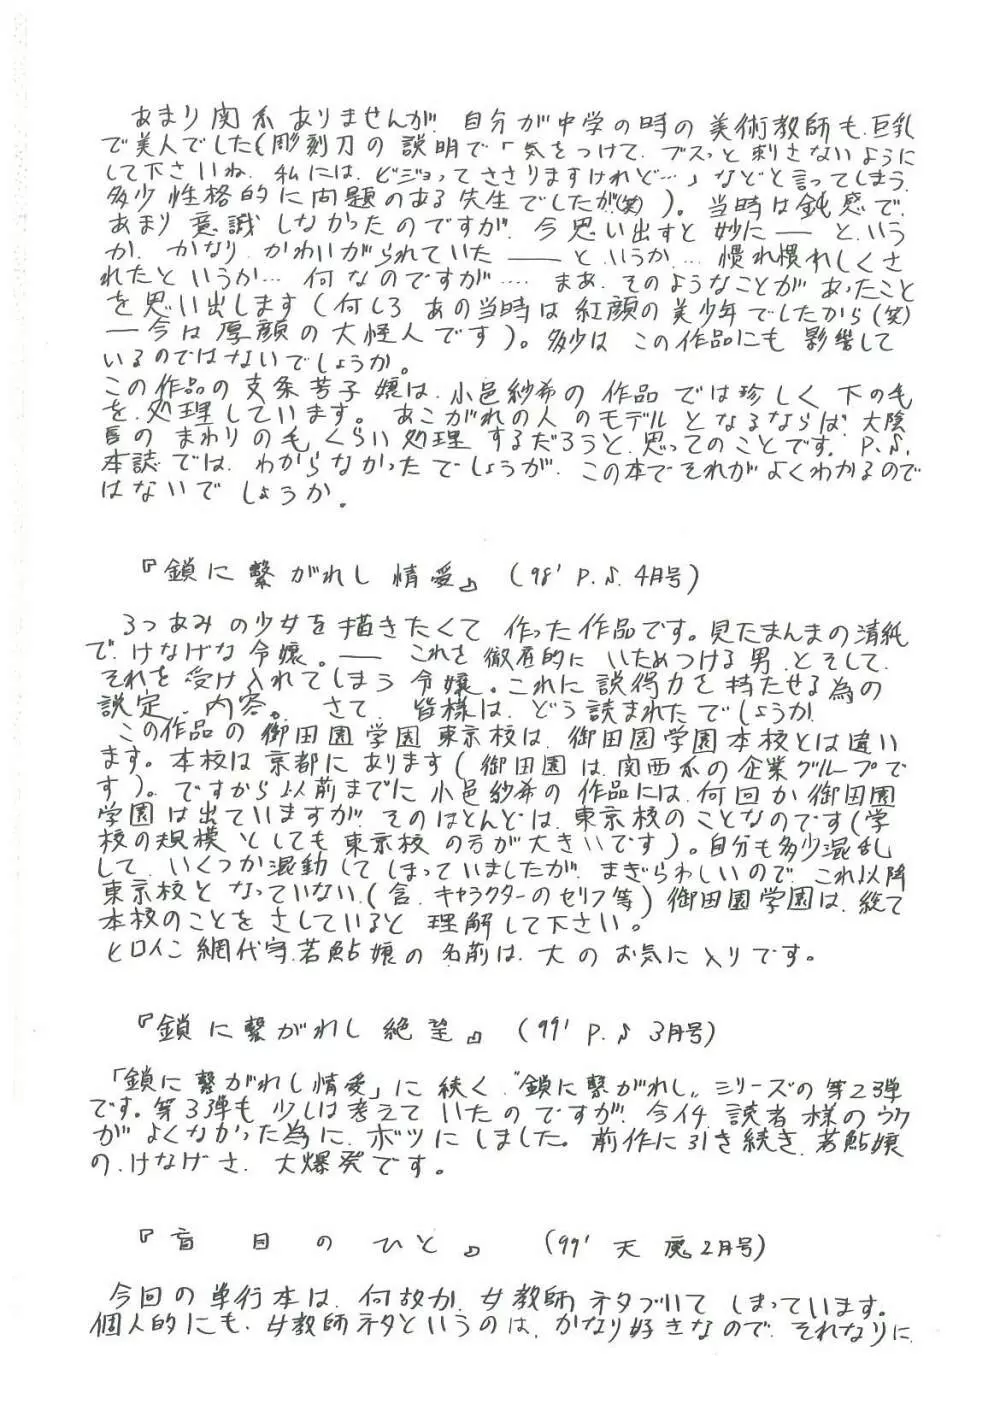 あまり関系ありませんが、自分が中学の時の美術教師も、巨乳
で美人でした(彫刻刀の説明で「気をつけて、ブスっと刺さないように
して下さいね、私には、ビジョってささりますけれど…」などと言ってしまう、
多少性格的に問題のある先生でしたが(笑))。当時は鈍感で、
あまり意識しなかったのですが、今思い出すと妙に――と、いう
か、かなり、かわいがられていた――と、いうか…、慣れ慣れしくさ
れたというか…何なのですが…、まあ、そのようなことがあったこと
を思い出します(何しろあの当時は紅顔の美少年でしたから(笑)
―今は厚顔の大怪人です)。多少は、この作品にも影響して
いるのではないでしょうか。
この作品の支条芳子嬢は、小邑紗希の作品では珍しく下の毛
を、処理しています。あこがれの人のモデルとなるならば、大陰
唇のまわりの毛くらい処理するだろうと、思ってのことです。P.S.
本誌では、わからなかったでしょうが、この本でそれがよくわかるので
はないでしょうか。
『鎖に繋がれし情愛』(98' P.S. 4月号)
3つあみの少女を描きたくて作った作品です。見たまんまの清純
で、けなげな令嬢。――これを徹底的にいためつける男、とそして、
それを受け入れてしまう令嬢。これに説得力を持たせる為の
設定、内容。さて、皆様は、どう読まれたでしょうか。
この作品の御田園学園東京校は、御田園学園本校とは違い
ます。本校は京都にあります(御田園は、関西系の企業グループで
す)。ですから以前までに小邑紗希の作品には、何回か御田園
学園は出ていますが、そのほとんどは、東京校のことなのです(学
校の規模としても東京校の方が大きいです)。自分も多少混乱
して、いくつか混動してしまっていましたが、まぎらわしいので、これ以降
東京校となっていない(含、キャラクターのセリフ等)御田園学園は、総て
本校のことをさしていると理解して下さい。
ヒロイン網代守若鮎嬢の名前は、大のお気に入りです。
『鎖に繋がれし絶望』(99' P.S 3月号)
「鎖に繋がれし情愛」に続く、"鎖に繋がれし"シリーズの第2弾
です。第3弾も少しは考えていたのですが、今イチ読者様のウケ
がよくなかった為に、ボツにしました。前作に引き続き、若鮎嬢
の、けなげさ、大爆発です。
『盲目のひと』(99' 天魔2月号)
今回の単行本は、何故か、女教師ネタづいてしまっています。
個人的にも、女教師ネタというのは、かなり好きなので、それなりに、